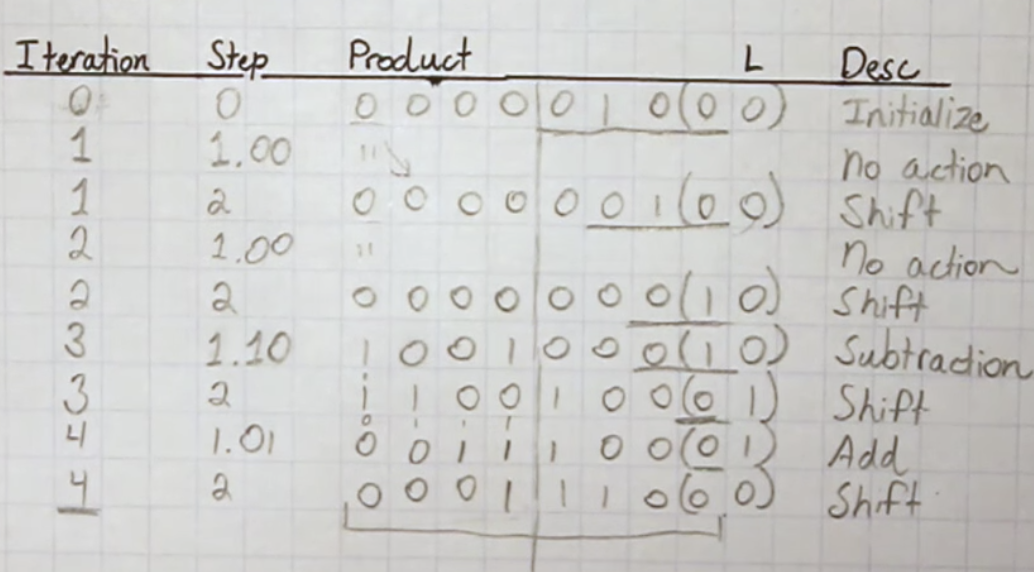 Iteration Step Product L Desc
0 0 0 0 0 0 0 1 0 (0 0) Initialize
1 1.00 " no action
1 2 0 0 0 0 0 0 1 (0 0) Shift
2 1.00 " no action
2 2 0 0 0 0 0 0 0 (1 0) Shift
3 1.10 1 0 0 1 0 0 0 (1 0) Subtraction
3 2 1 1 0 0 1 0 0 (0 1) Shift
4 1.01 0 0 1 1 1 0 0 (0 1) Add
4 2 0 0 0 1 1 1 0 (0 0) Shift